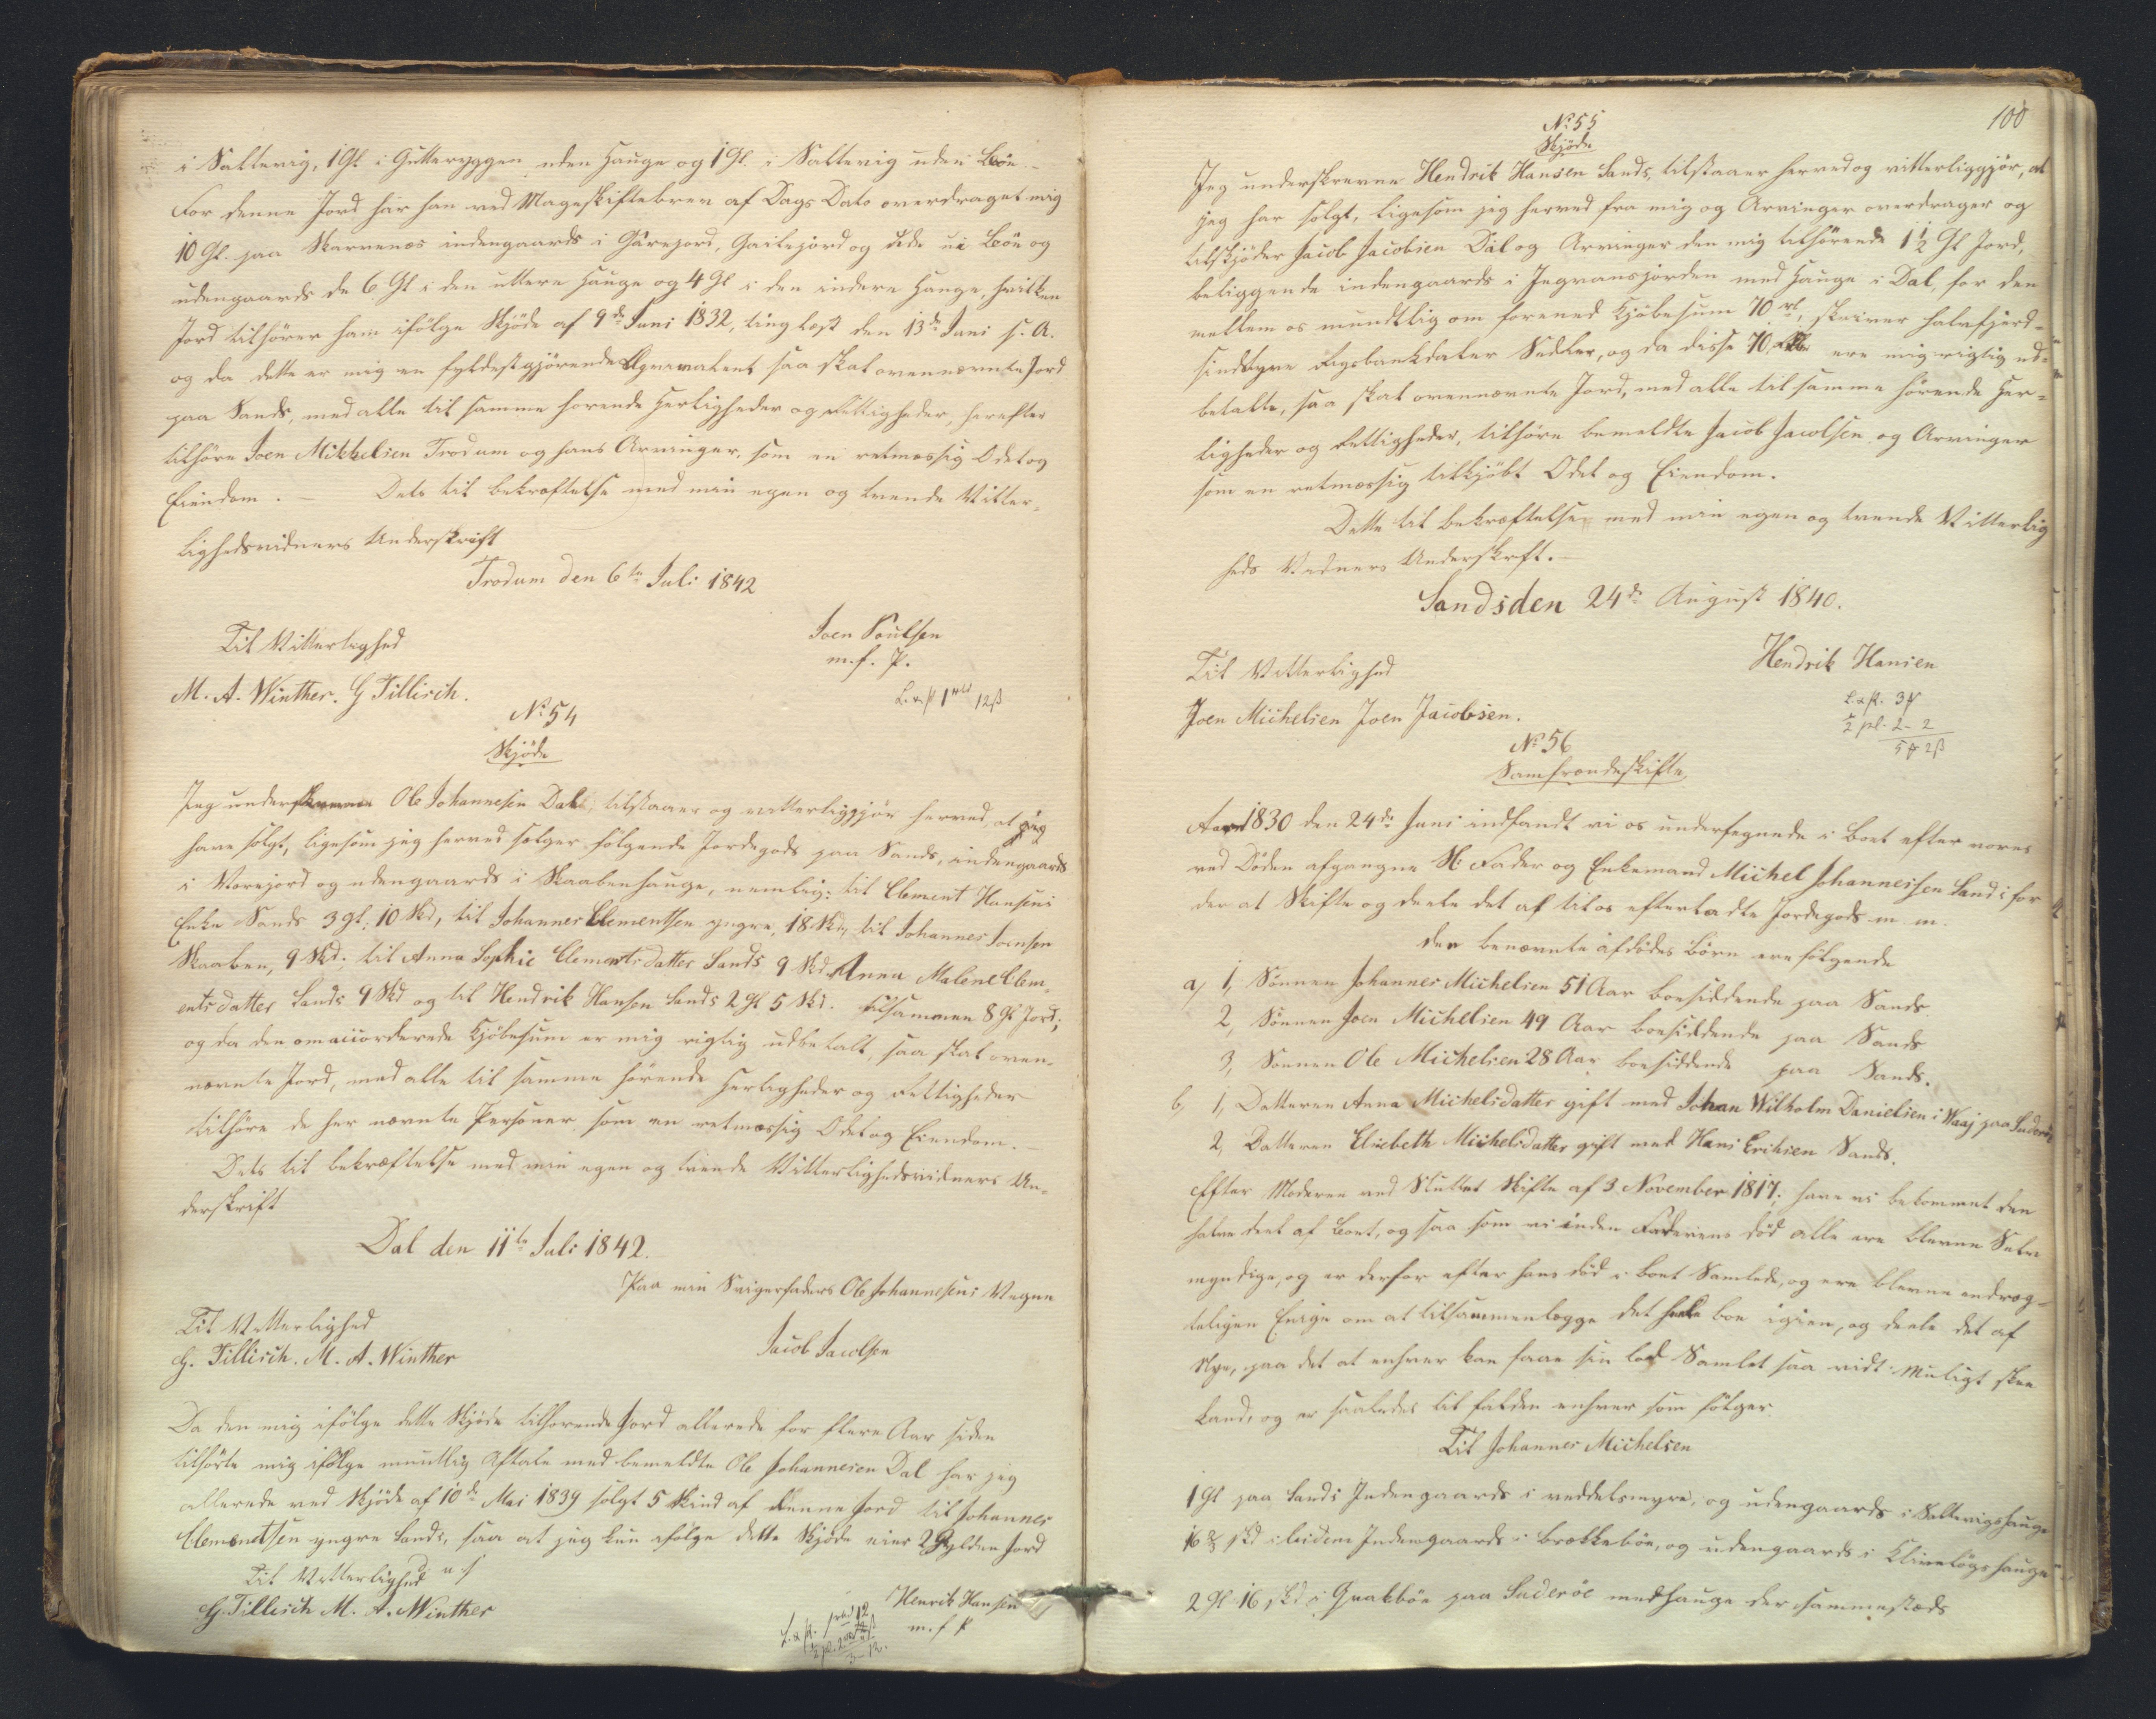 i Saltevig, 1 Gl. i Gutteryggen uden Hauge og 1 Gl. i Saltevig uden Böe. –
For denne Jord har han ved Mageskiftebrev af Dags Dato overdraget mig
10 Gl. paa Skarvenæs indengaards i Gârejord, Gaitejord og ude ui Böe og
udengaards de 6 Gl i den uttere Hauge og 4 Gl i den indere Hauge, hvilken
Jord tilhører ham ifölge Skjöde af 9de Juni 1832, tinglæst den 13de Juni s. A.
og da dette er mig en fyldestgjörende Eqvivalent saa skal ovennævnte Jord
paa Sands, med alle til samme hørende Herligheder og Rettigheder, herefter
tilhöre Joen Mikkelsen Trödum og hans Arvinger, som en retmæssig Odel og
Eiendom. – Dets til bekræftelse med min egen og tvende Vitter-
lighedsvidners Underskrift
Trödum den 6te Juli 1842
Joen Poulsen
m. f. P.
Til Vitterlighed
M. A. Winther. G Tillisch.
L. & st 1 rbd 12 ß
No 54
Skjöde
Jeg underskrevne Ole Johannesen Dal tilstaaer og vitterliggjör herved, at jeg
have solgt, ligesom jeg herved sælger følgende Jordegods paa Sands, indengaards
i Vorejord og udengaards i Skaabenhauge, nemlig: til Clement Hansens
Enke Sands 3 gl. 10 Skd, til Johannes Clementsen yngre, 18 Skd, til Johannes Joensen
Skaaben, 9 Skd; til Anna Sophie Clementsdatter Sands 9 Skd. Anna Malene Clem-
entsdatter Sands 9 Skd og til Hendrik Hansen Sands 2 gl 5 Skd. tilsammen 8 Gl Jord;
og da den omaccorderede Kjöbesum er mig rigtig udbetalt, saa skal oven-
nævnte Jord, med alle til samme hörende Herligheder og Rettigheder
tilhöre de her nævnte Personer som en retmæssig Odel og Eiendom. –
Dets til bekræftelse med min egen og tvende Vitterlighedsvidners Un-
derskrift
Dal den 11te Juli 1842.
Paa min Svigerfaders Ole Johannesens Vegne
Til Vitterlighed
Jacob Jacobsen
G. Tillisch. M. A. Winther
Da den mig ifölge dette Skjöde tilhørende Jord allerede for flere Aar siden
tilhörte mig ifölge mundtlig Aftale med bemeldte Ole Johannesen Dal har jeg
allerede ved Skjöde af 10de Mai 1839 solgt 5 Skind af denne Jord til Johannes
Clementsen yngre Sands, saa at jeg kun ifölge dette Skjöde eier 2 Gylden Jord
D. u. s
Til Vitterlighed
Henrik Hansen
G. Tillisch M. A. Winther
m. f P
L. & st. 1 rbd 12
100
No 55
Skjöde
Jeg underskrevne Hendrik Hansen Sands, tilstaaer herved og vitterliggjör, at
jeg har solgt, ligesom jeg herved fra mig og Arvinger overdrager og
tilskjöder Jacob Jacobsen Dal og Arvinger den mig tilhörende 1 1/2 Gl Jord,
beliggende indengaards i Jegvansjorden med Hauge i Dal, for den
mellem os mundtlig om forened Kjöbesum 70 rd, skriver halvfjerd-
sindstyve Rigsbankdaler Sedler, og da disse 70 ere mig rigtig ud-
betalte, saa skal ovennævnte Jord, med alle til samme hörende Her-
ligheder og Rettigheder, tilhöre bemeldte Jacob Jacobsen og Arvinger
som en retmæssig tilkjöbt Odel og Eiendom.
Dette til bekræftelse med min egen og tvende Vitterlig
heds Vidners Underskrft. –
Sands den 24de August 1840.
Hendrik Hansen
Til Vitterlighed
Joen Michelsen Joen Jacobsen.
L. & st. 3
1/2 pC. 2 – 2
5 2 ß
No 56
Samfrændeskifte
Aar 1830 den 24de Juni indfandt vi os undertegnede i Boet efter vores
ved Döden afgangne Sl: Fader og Enkemand Michel Johannessen Sands for
der at Skifte og deele det af til os efterladte Jordegods m. m.
den benævnte afdödes börn ere fölgende
a, 1, Sönnen Johannes Michelsen 51 Aar boesiddende paa Sands
2, Sönnen Joen Michelsen 49 Aar boesiddende paa Sands
3, Sönnen Ole Michelsen 28 Aar boesiddende paa Sands.
b, 1, Datteren Anna Michelsdatter gift med Johan Wilholm Danielsen i Waaj paa Suderöe
2, Datteren Elsebeth Michelsdatter gift med Hans Eriksen Sands.
Efter Moderen ved Sluttet Skifte af 3 November 1817, have vi bekommet den
halve deel af Boet, og saa som vi inden Faderens död alle ere blevne Selv
myndige, og er derfor efter hans död i boet Samlede, og ere blevne endræg-
teligen Enige om at tilsammenlægge det heele boe igien, og deele det af
Nye, paa det at enhver kan faae sin lod Samlet saa vidt Muligt skee
kand, og er saaledes til falden enhver som fölger.
Til Johannes Michelsen
1 Gl paa Sands Indengaards i veddelsmyre, og udengaards i Saltevigshauge
16 2/3 skd i leidem Indengaards i Brækkeböe, og udengaards i Klivelögshauge
2 Gl 16 skd i Qvalböe paa Suderöe med hauge der sammesteds